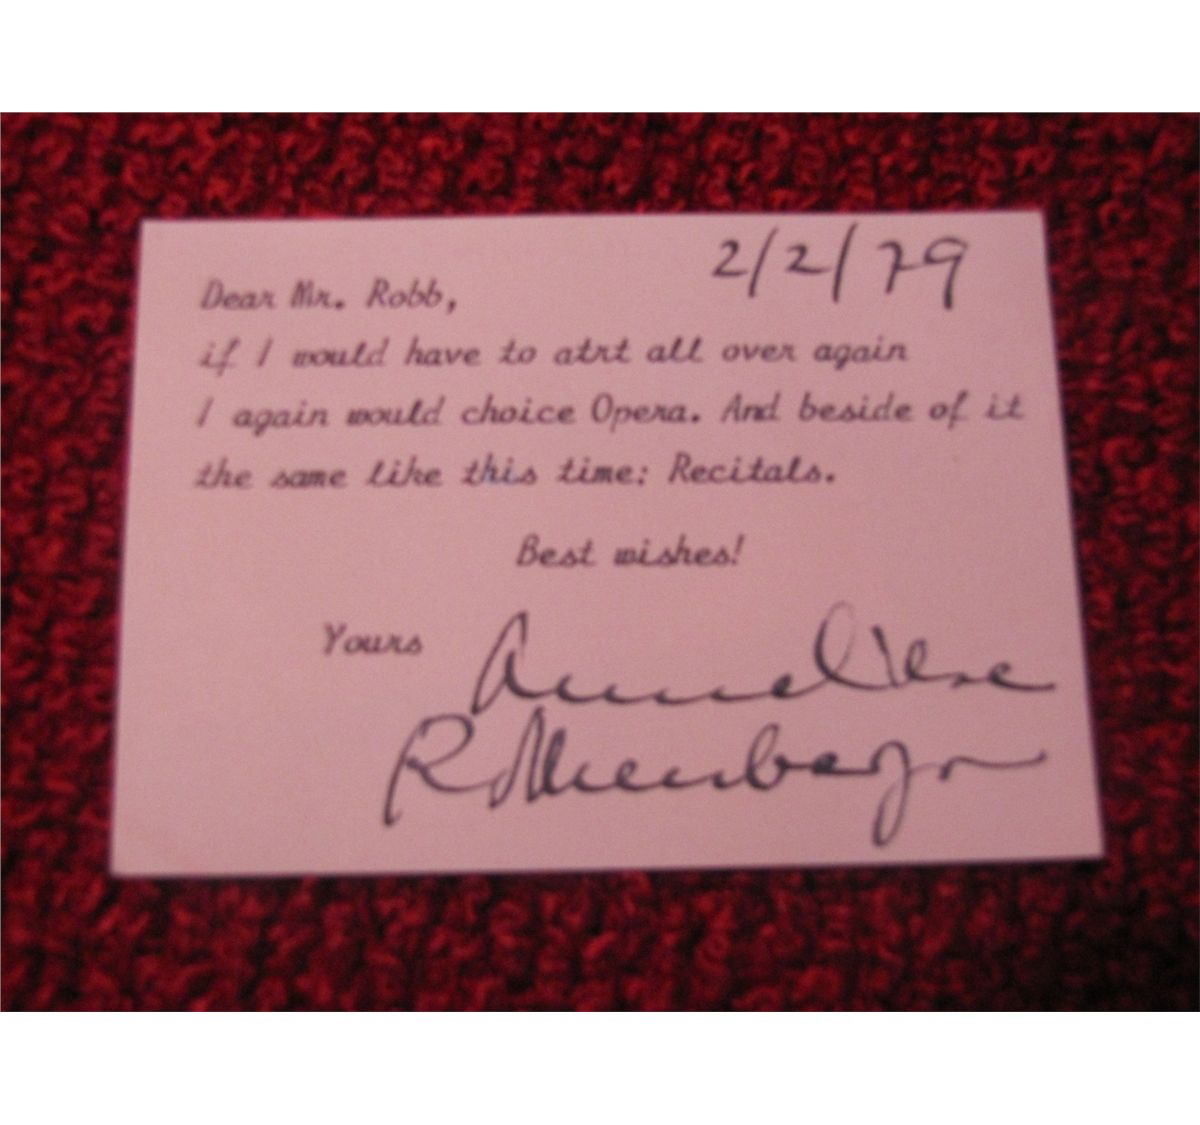 2/2/79
Dear Mr. Robb,
if I would have to atrt all over again
I again would choice Opera. And beside of it
the same like this time: Recitals.
Best wishes!
Yours Anneliese
Rothenberger